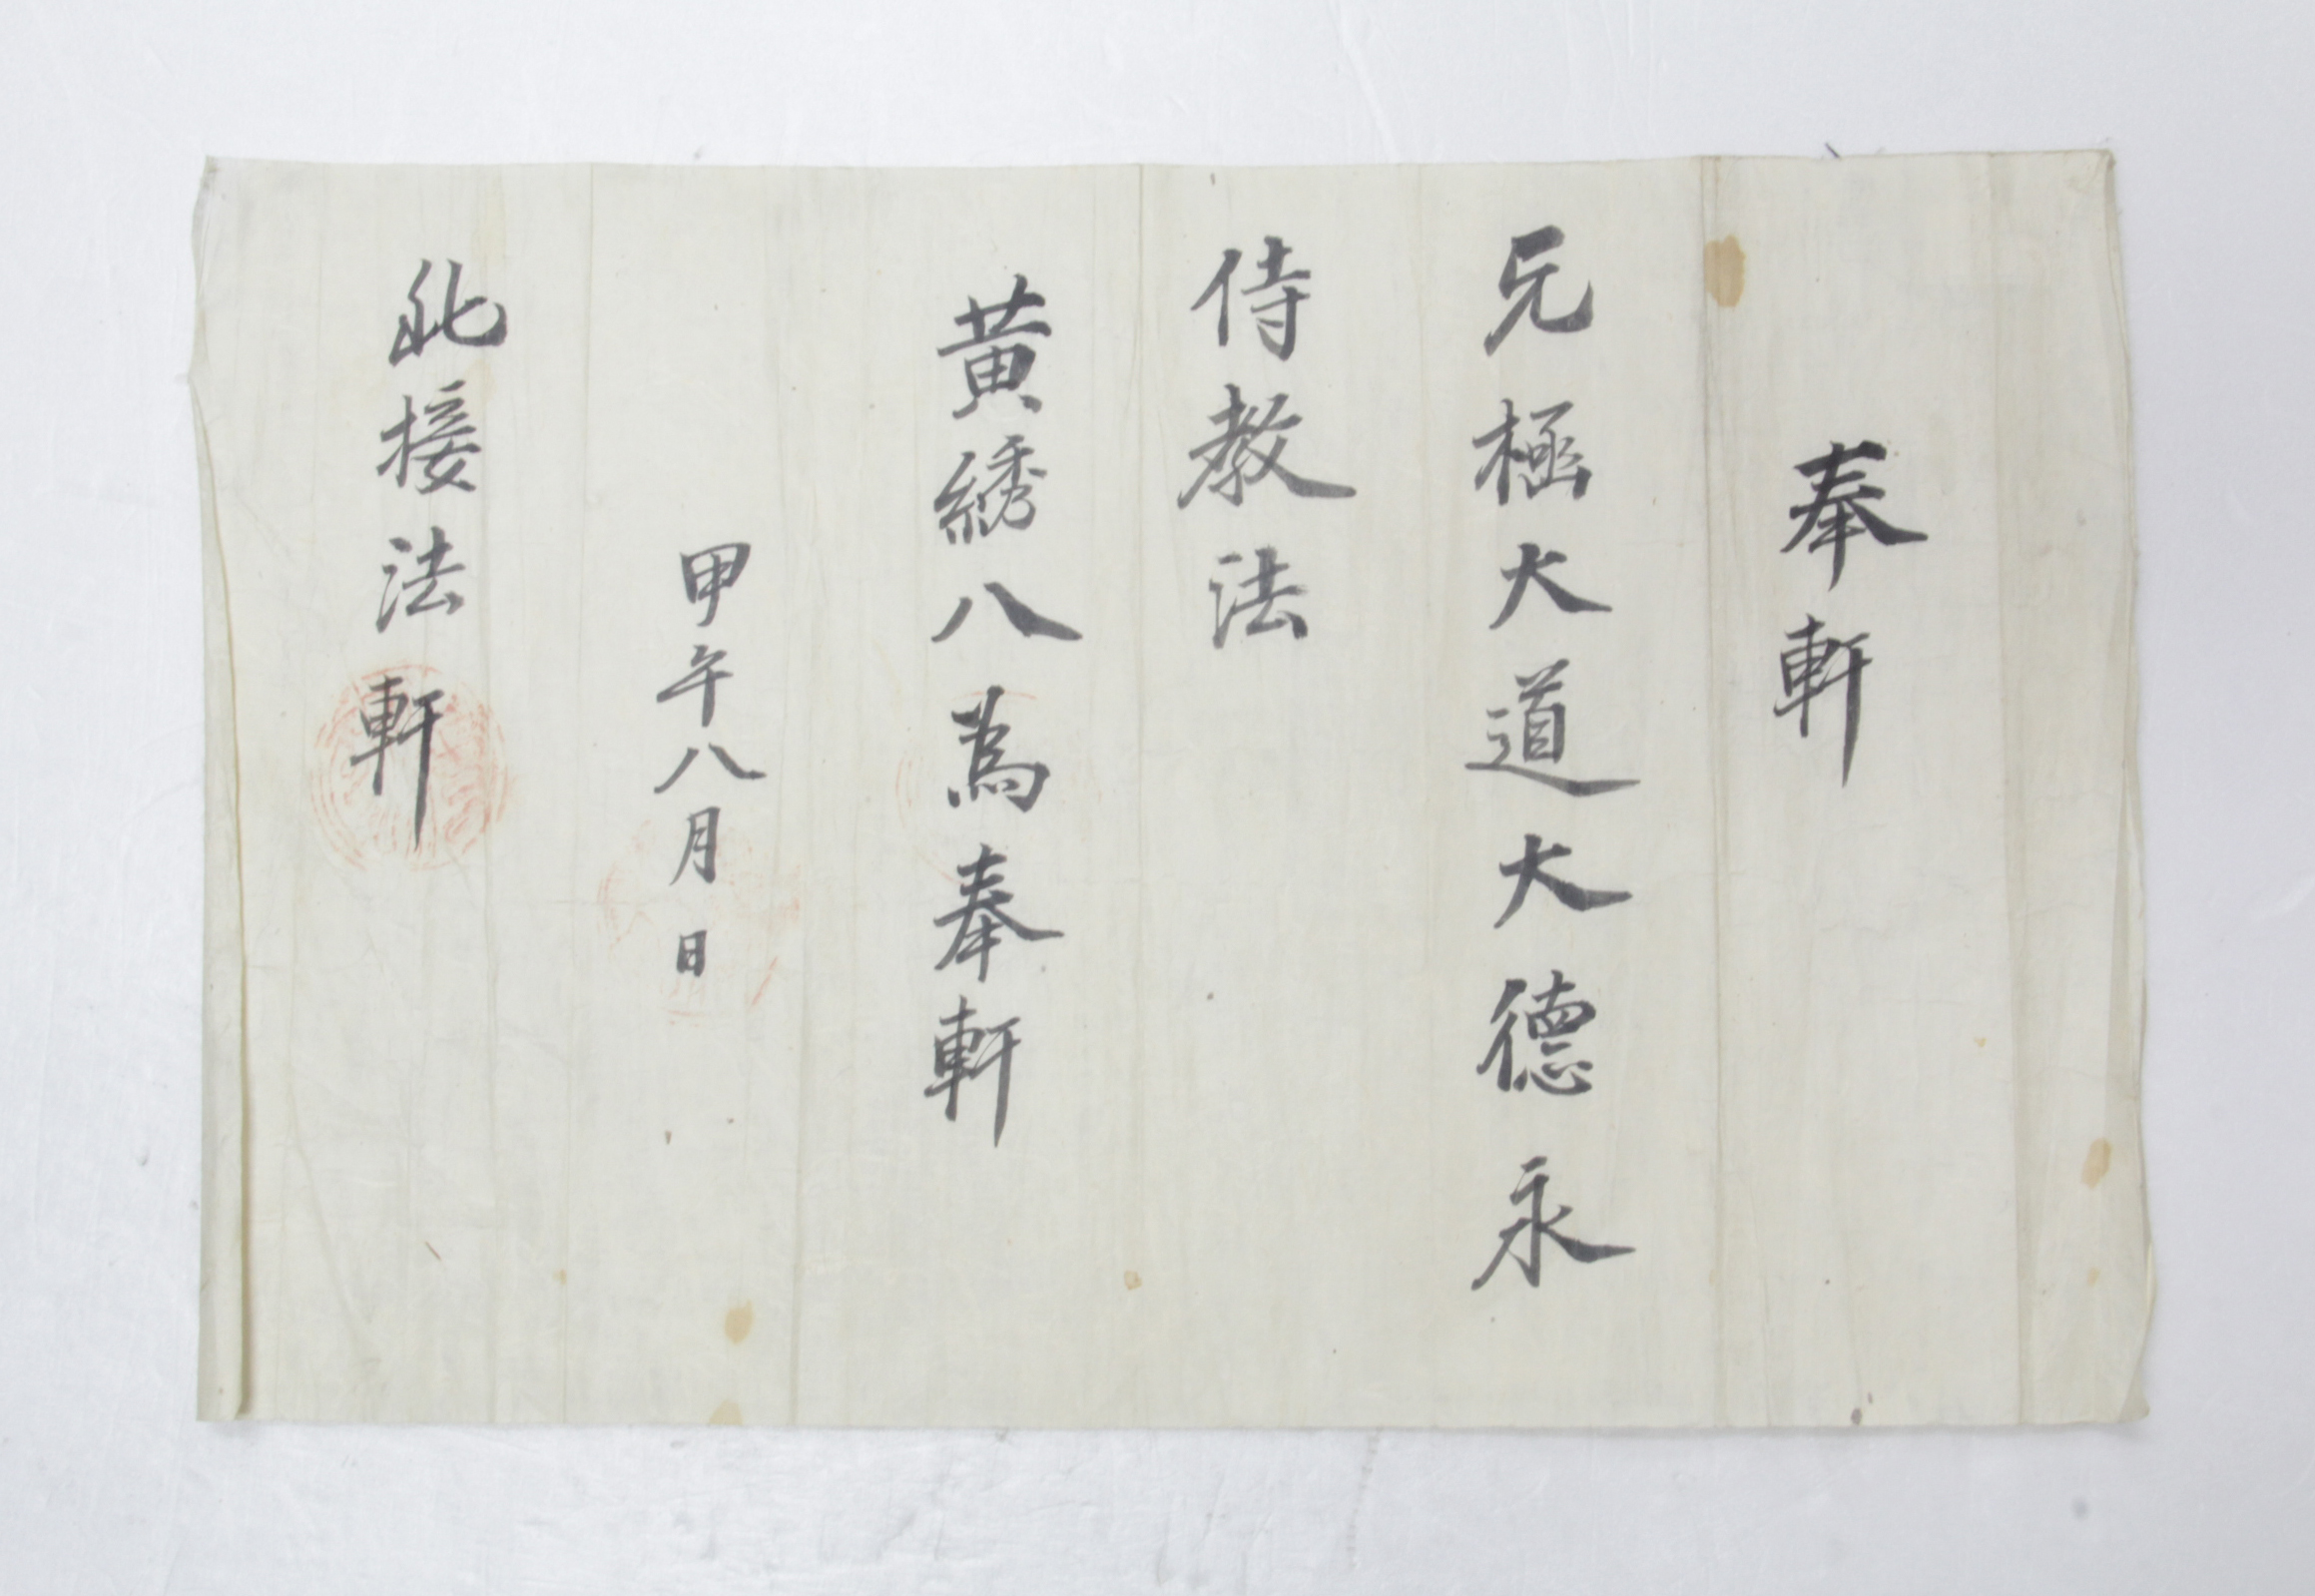 奉軒
无極大道大德永
侍教法
黃綉八為奉軒
甲午八月日
北接法軒